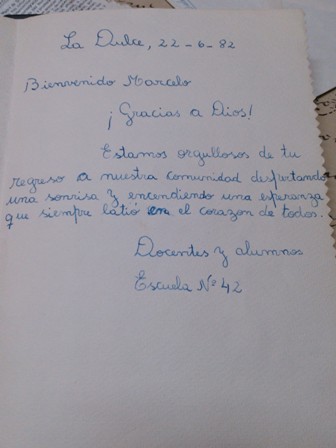 La Dulce, 22-6-82
Bienvenido Marcelo
¡Gracias a Dios!
Estamos orgullosos de tu
regreso a nuestra comunidad despertando
una sonrisa y encendiendo una esperanza
que siempre latió en el corazon de todos.
Docentes y alumnos
Escuela Nº 42